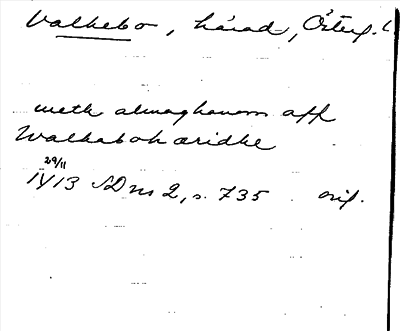 Valkebo, härad, Östergl.
meth almoghanom aff
Walkabohæridhe
29/11
1413 SD ns 2, s. 735 orig.